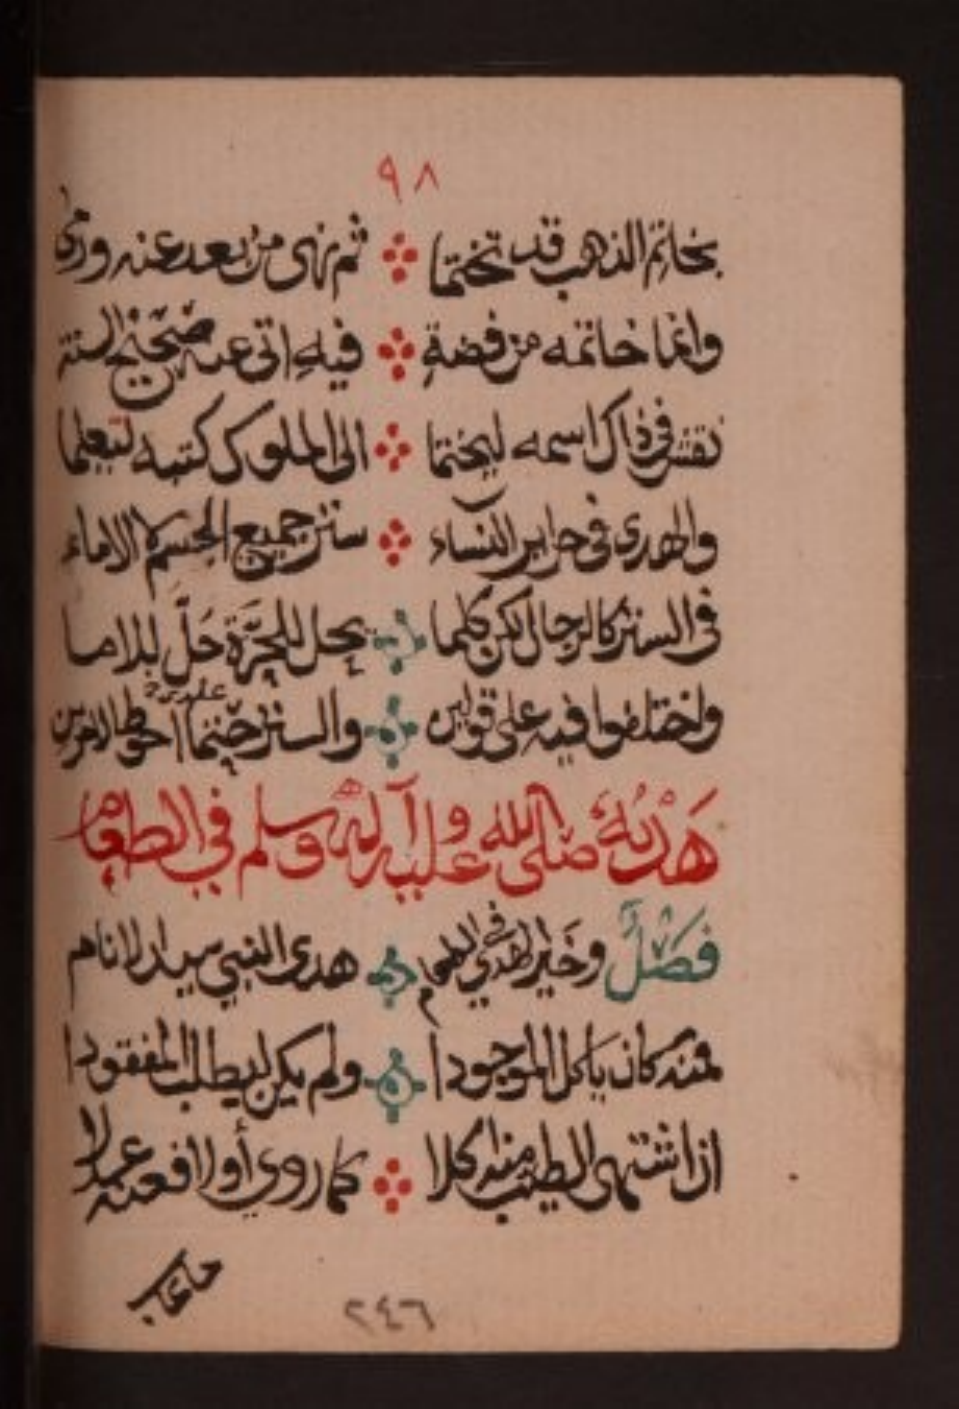 ٩٨
بخاتم الذهب قد تختما ثم نهى من بعد عنه ورمى
وانما خاتمه من فضة فيه اتى عنه صحيح السنة
نقش في ذاك اسمه ليختما الى الملوك كتبه لتعلما
والهدى في حراير النساء ستر جميع الجسم لا الاماء
في الستر كالرجال لكن كلما يحل للحرة حل للاما
واختلفوا فيه على قولين والستر حتما احوط الامرين
هَدْيُهُ صلى الله عليه وآله وسلم في الطعام
فَصْلٌ وخير الهدي في الطعام هدى النبي سيد الانام
فمنه كان ياكل الموجودا ولم يكن ليطلب المفقودا
ان اشتهى الطيب منه اكلا كما روي أو لا فعنه عدلا
ما عاب
٢٤٦